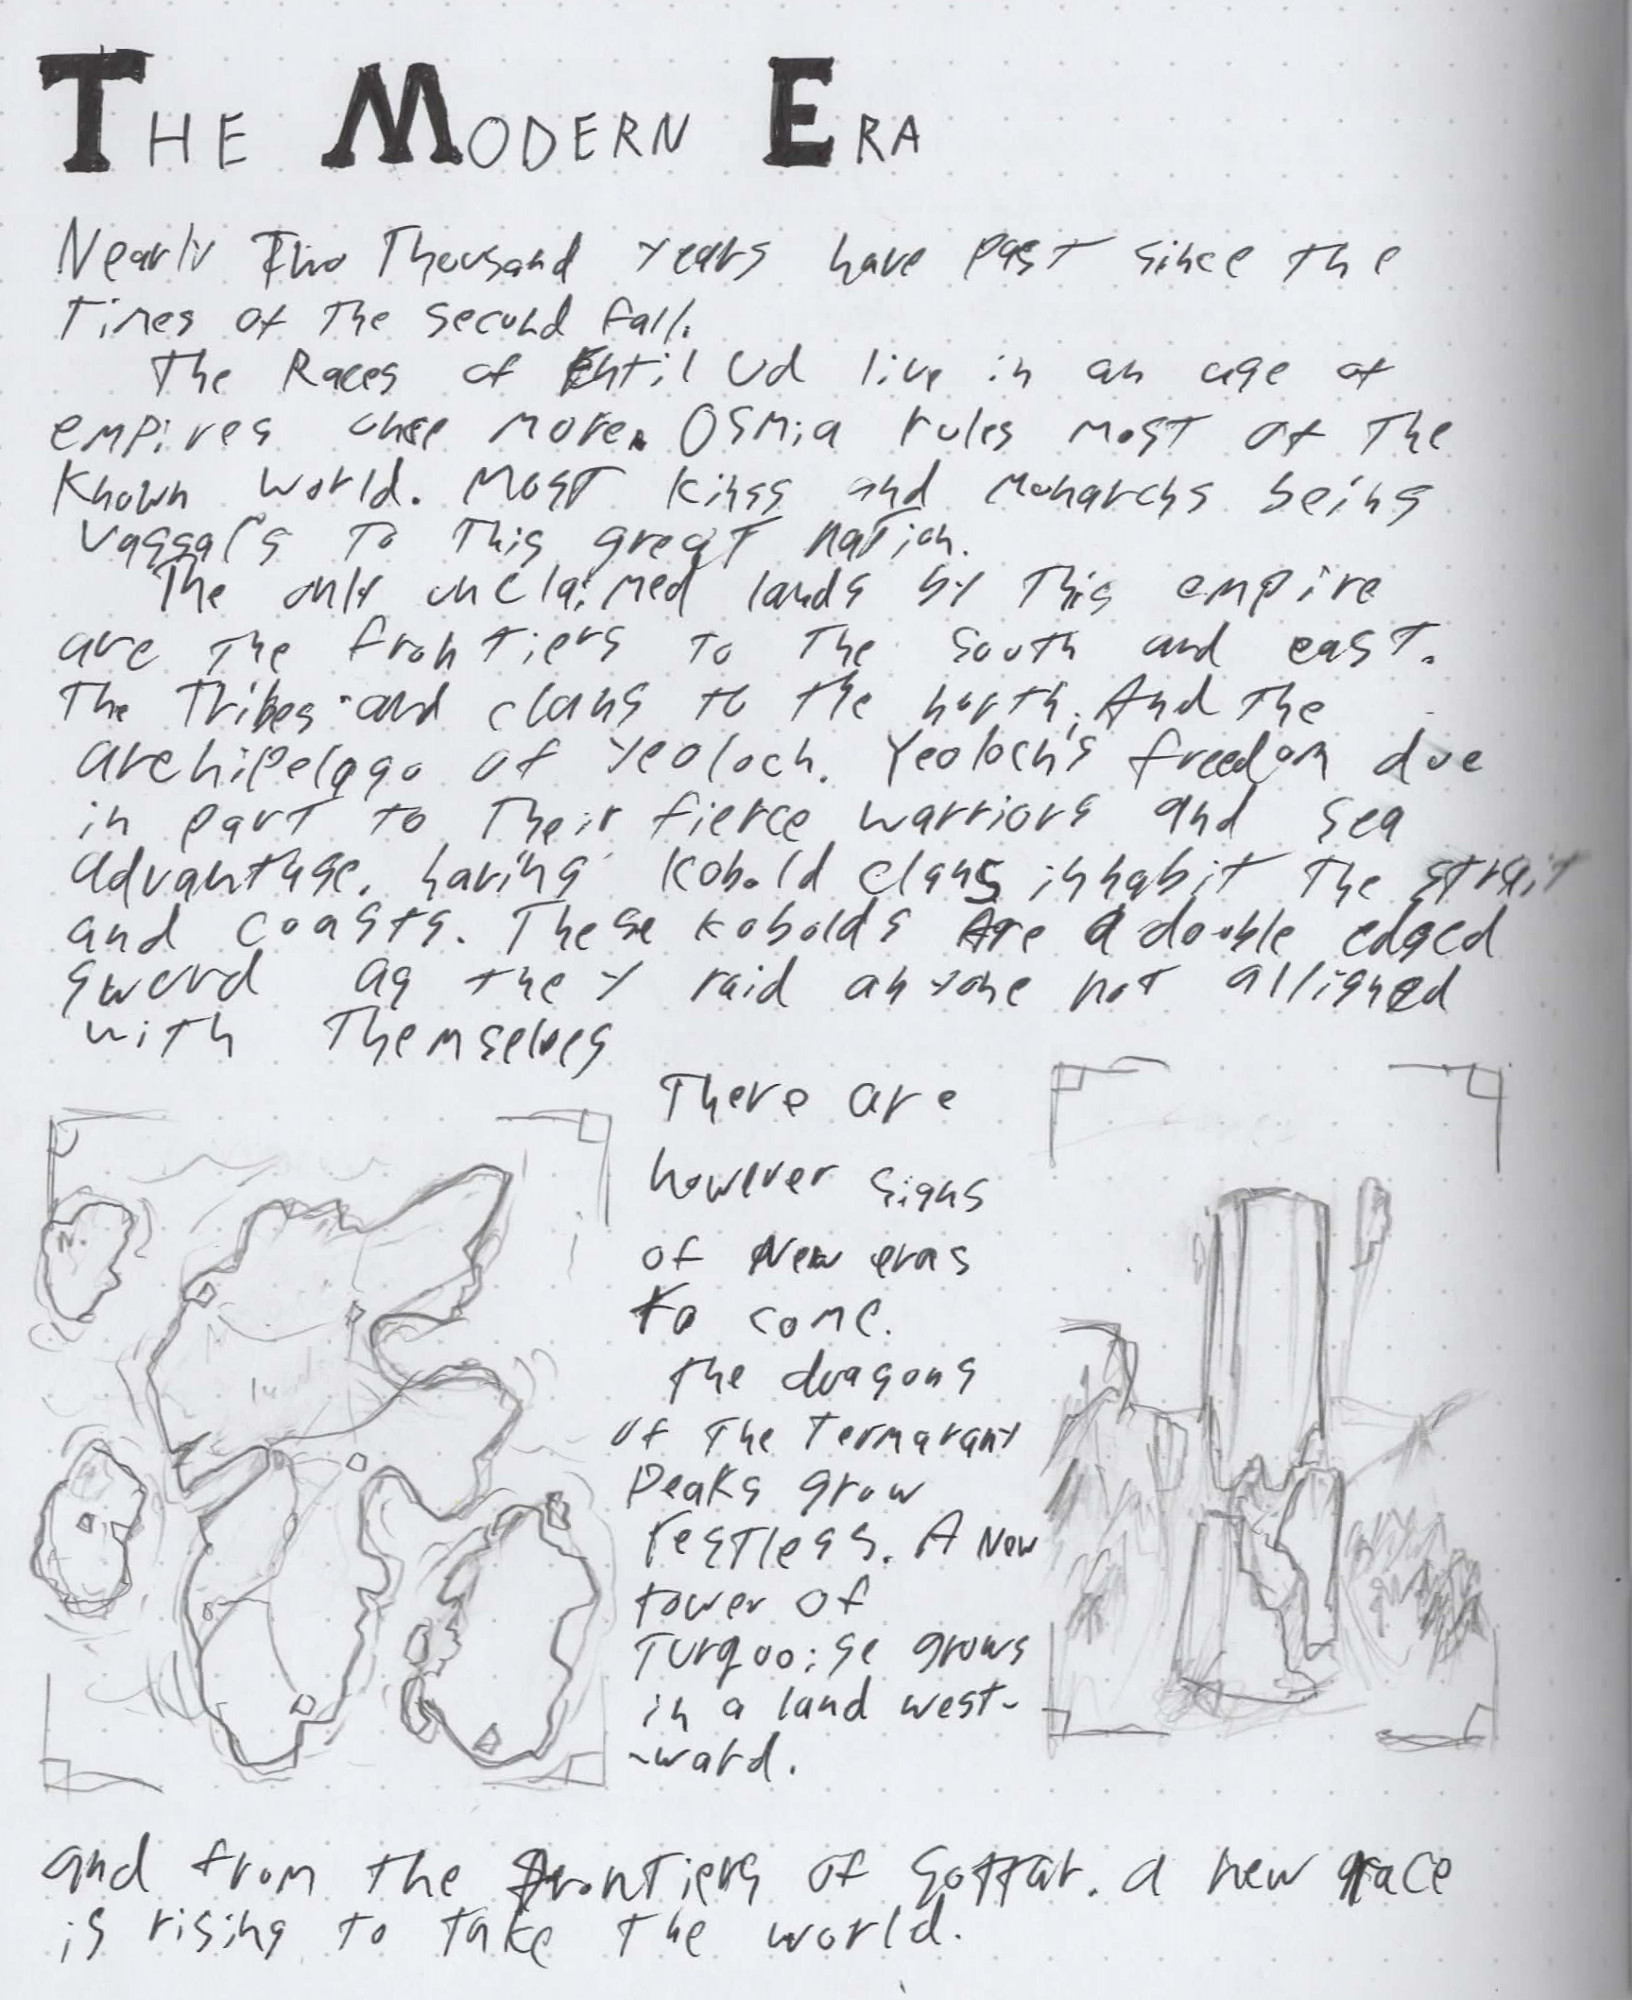 THE MODERN ERA
Nearly Two Thousand years have past since the
Times of The second fall.
The Races of Entil Ud live in an age of
empires once more. Osmia rules most of The
Known world. Most kings and monarchs being
vassal's To This great nation.
The only unclaimed lands by This empire
are The frontiers To The South and east.
The Tribes and clans to the north. And The
archipelago of Yeoloch. Yeoloch's freedom due
in part to Their fierce warriors and sea
advantage. having kobold clans inhabit The strait
and coasts. These kobolds Are a double edged
sword as they raid anyone not alligned
with Themselves
There are
however signs
of New eras
to come.
The dragons
of The Termarant
Peaks grow
resTless. A New
tower of
Turquoise grows
in a land west-
-ward.
and from the frontiers of Soffar. a new race
is rising to take the world.
N.